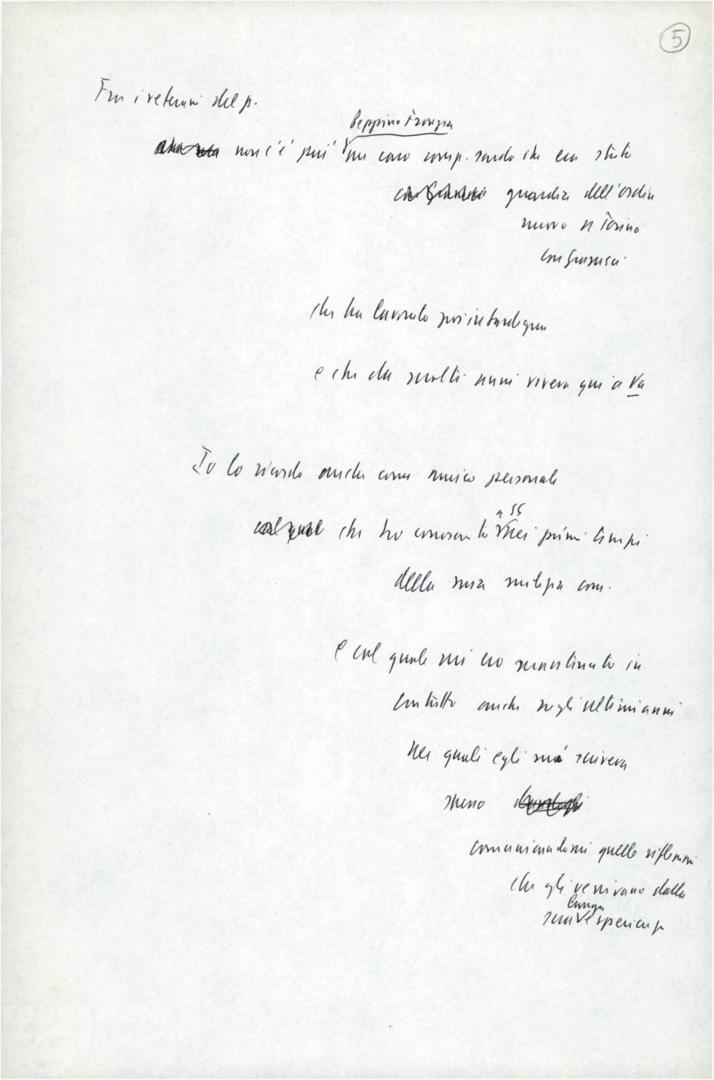 5
Fra i veterani del p.
Beppino Frongia
non c'è più un caro comp. sardo che era stato
guardia dell'ordine
nuovo a Torino
con Gramsci.
che ha lavorato poi in Sardegna
e che da molti anni viveva qui a Va
Io lo ricordo anche come amico personale
a SS
che ho conosciuto nei primi tempi
della mia milizia com.
e col quale mi ero mantenuto in
contatto anche negli ultimi anni
nei quali egli mi scriveva
spesso
comunicandomi quelle riflessioni
che gli venivano dalla
lunga
sua esperienza